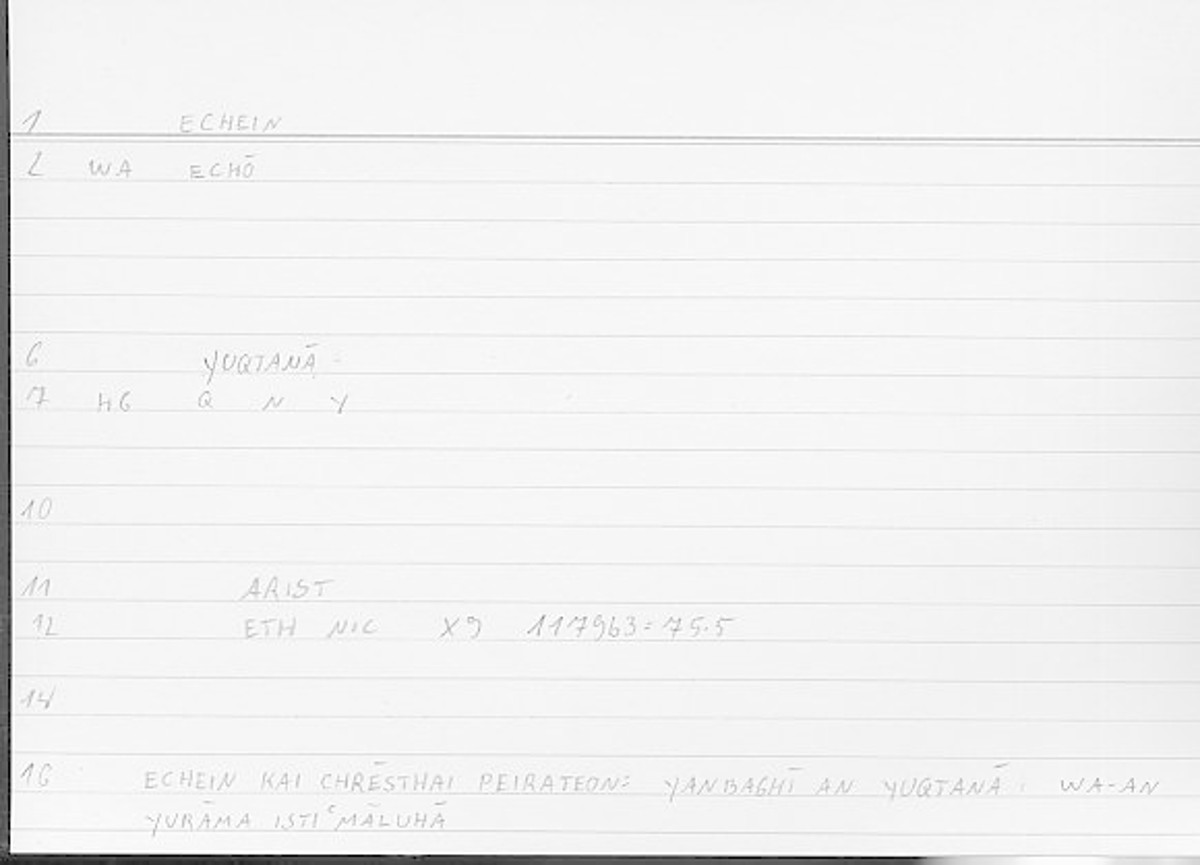 1 ECHEIN
2 WA ECHŌ
6 YUQTANĀ
7 HG Q N Y
10
11 ARIST
12 ETH NIC X9 1179b3: 75.5
14
16 ECHEIN KAI CHRĒSTHAI PEIRATEON: YANBAGHĪ AN YUQTANĀ : WA-AN
YURĀMA ISTIʿMĀLUHĀ